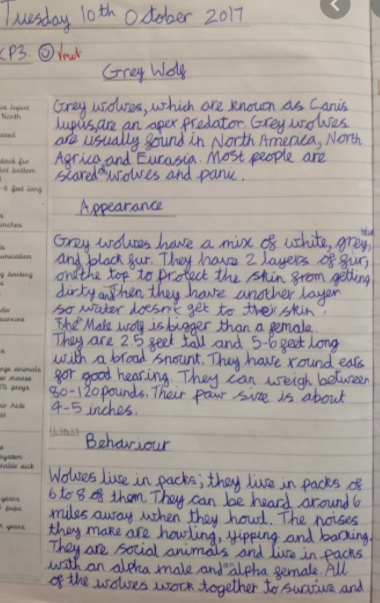 Tuesday 10th October 2017
CP3.
Grey Wolf
Grey wolves, which are known as Canis
lupus, are an apex predator. Grey wolves
are usually found in North America, North
Africa and Eurasia. Most people are
scared of wolves and panic.
Appearance
Grey wolves have a mix of white, grey,
and black fur. They have 2 layers of fur,
on the top to protect the skin from getting
dirty and then they have another layer
so water doesn't get to their skin.
The Male wolf is bigger than a female.
They are 2.5 feet tall and 5-6 feet long
with a broad snount. They have round ears
for good hearing. They can weigh between
80-120 pounds. Their paw size is about
4-5 inches.
Behaviour
Wolves live in packs; they live in packs of
6 to 8 of them. They can be heard around 6
miles away when they howl. The noises
they make are howling, yipping and barking.
They are social animals and live in packs
with an alpha male and an alpha female. All
of the wolves work together to survive and
lupus
North
black fur
6 feet long
inches
barking
large animals
or moose
hide
years
years